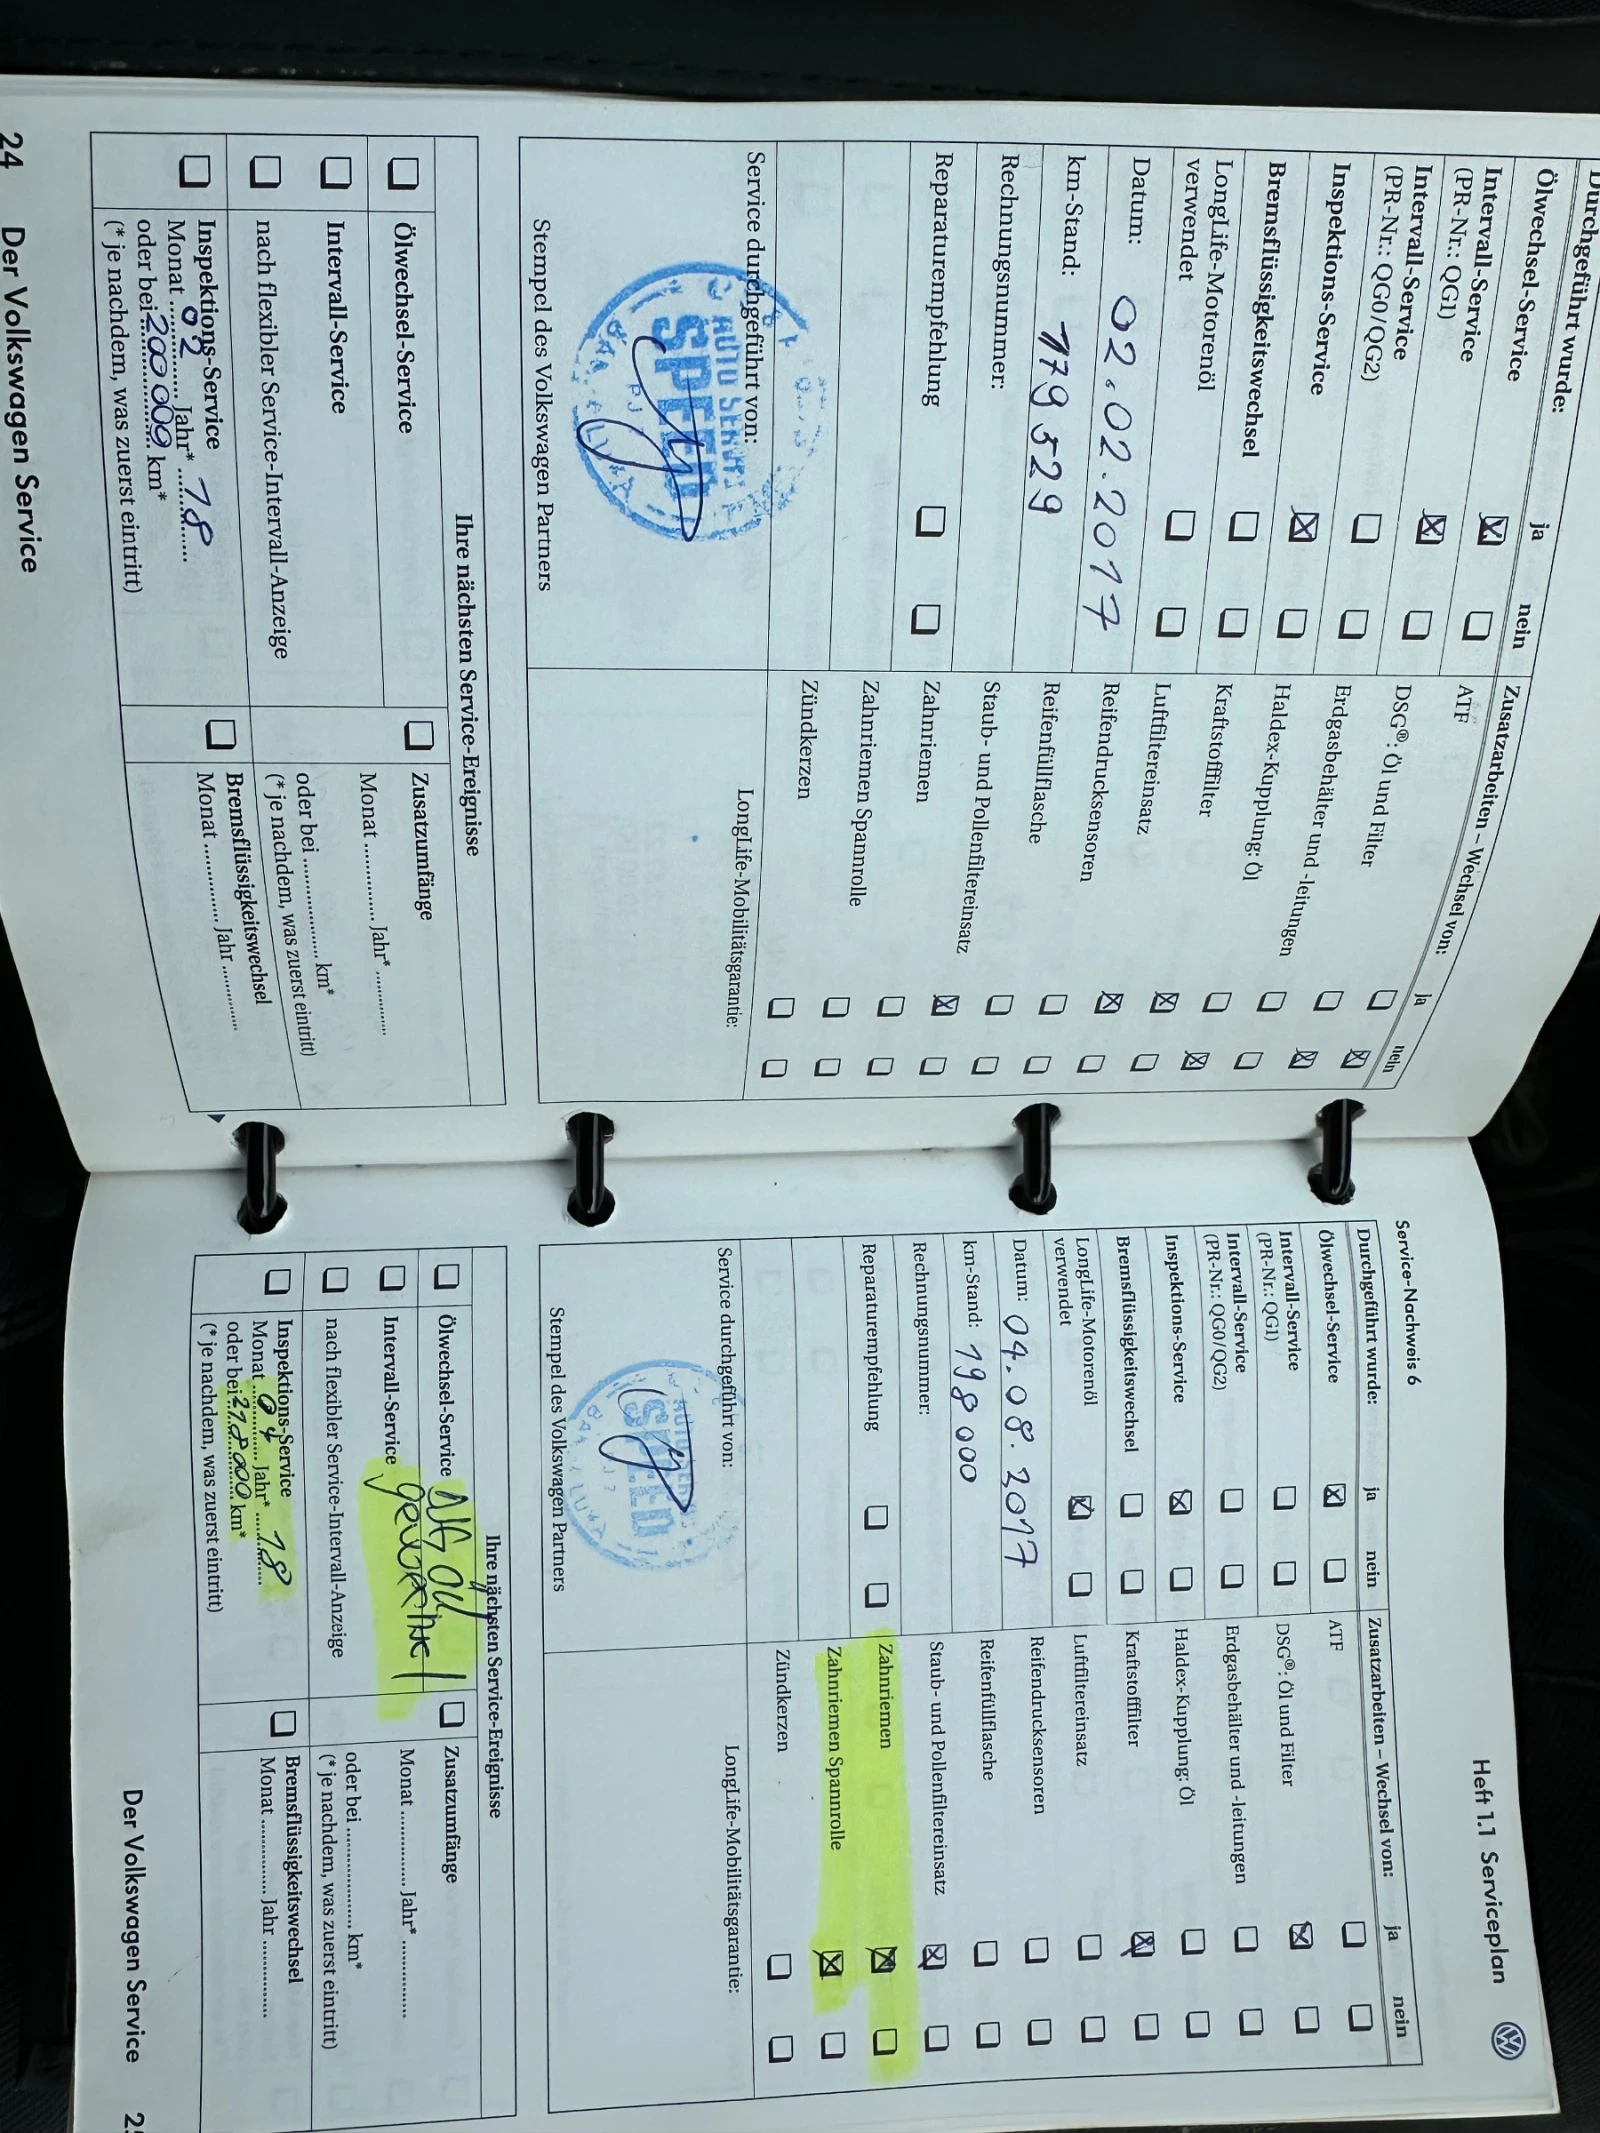 Durchgeführt wurde:
ja
nein
Zusatzarbeiten – Wechsel von:
ja
nein
Ölwechsel-Service
Intervall-Service
(PR-Nr.: QG1)
Intervall-Service
(PR-Nr.: QG0/QG2)
Inspektions-Service
Bremsflüssigkeitswechsel
LongLife-Motorenöl
verwendet
Datum: 02.02.2017
km-Stand: 179 529
Rechnungsnummer:
Reparaturempfehlung
ATF
DSG®: Öl und Filter
Erdgasbehälter und -leitungen
Haldex-Kupplung: Öl
Kraftstofffilter
Luftfiltereinsatz
Reifendrucksensoren
Reifenfüllflasche
Staub- und Pollenfiltereinsatz
Zahnriemen
Zahnriemen Spannrolle
Zündkerzen
Service durchgeführt von:
AUTO SERVIS
SPEED
Stempel des Volkswagen Partners
LongLife-Mobilitätsgarantie:
Ihre nächsten Service-Ereignisse
Ölwechsel-Service
Intervall-Service
nach flexibler Service-Intervall-Anzeige
Inspektions-Service
Monat 02 Jahr* 18
oder bei 200 000 km*
(* je nachdem, was zuerst eintritt)
Zusatzumfänge
Monat ............ Jahr* ............
oder bei .................. km*
(* je nachdem, was zuerst eintritt)
Bremsflüssigkeitswechsel
Monat ............ Jahr ............
24 Der Volkswagen Service
Heft 1.1 Serviceplan
Service-Nachweis 6
Durchgeführt wurde:
ja
nein
Zusatzarbeiten – Wechsel von:
ja
nein
Ölwechsel-Service
Intervall-Service
(PR-Nr.: QG1)
Intervall-Service
(PR-Nr.: QG0/QG2)
Inspektions-Service
Bremsflüssigkeitswechsel
LongLife-Motorenöl
verwendet
Datum: 04.08.2017
km-Stand: 198 000
Rechnungsnummer:
Reparaturempfehlung
ATF
DSG®: Öl und Filter
Erdgasbehälter und -leitungen
Haldex-Kupplung: Öl
Kraftstofffilter
Luftfiltereinsatz
Reifendrucksensoren
Reifenfüllflasche
Staub- und Pollenfiltereinsatz
Zahnriemen
Zahnriemen Spannrolle
Zündkerzen
Service durchgeführt von:
SPEED
Stempel des Volkswagen Partners
LongLife-Mobilitätsgarantie:
Ihre nächsten Service-Ereignisse
Ölwechsel-Service
Intervall-Service
nach flexibler Service-Intervall-Anzeige
Inspektions-Service
Monat Jahr* 18
oder bei 218 000 km*
(* je nachdem, was zuerst eintritt)
Zusatzumfänge
Monat ............ Jahr* ............
oder bei .................. km*
(* je nachdem, was zuerst eintritt)
Bremsflüssigkeitswechsel
Monat ............ Jahr ............
Der Volkswagen Service